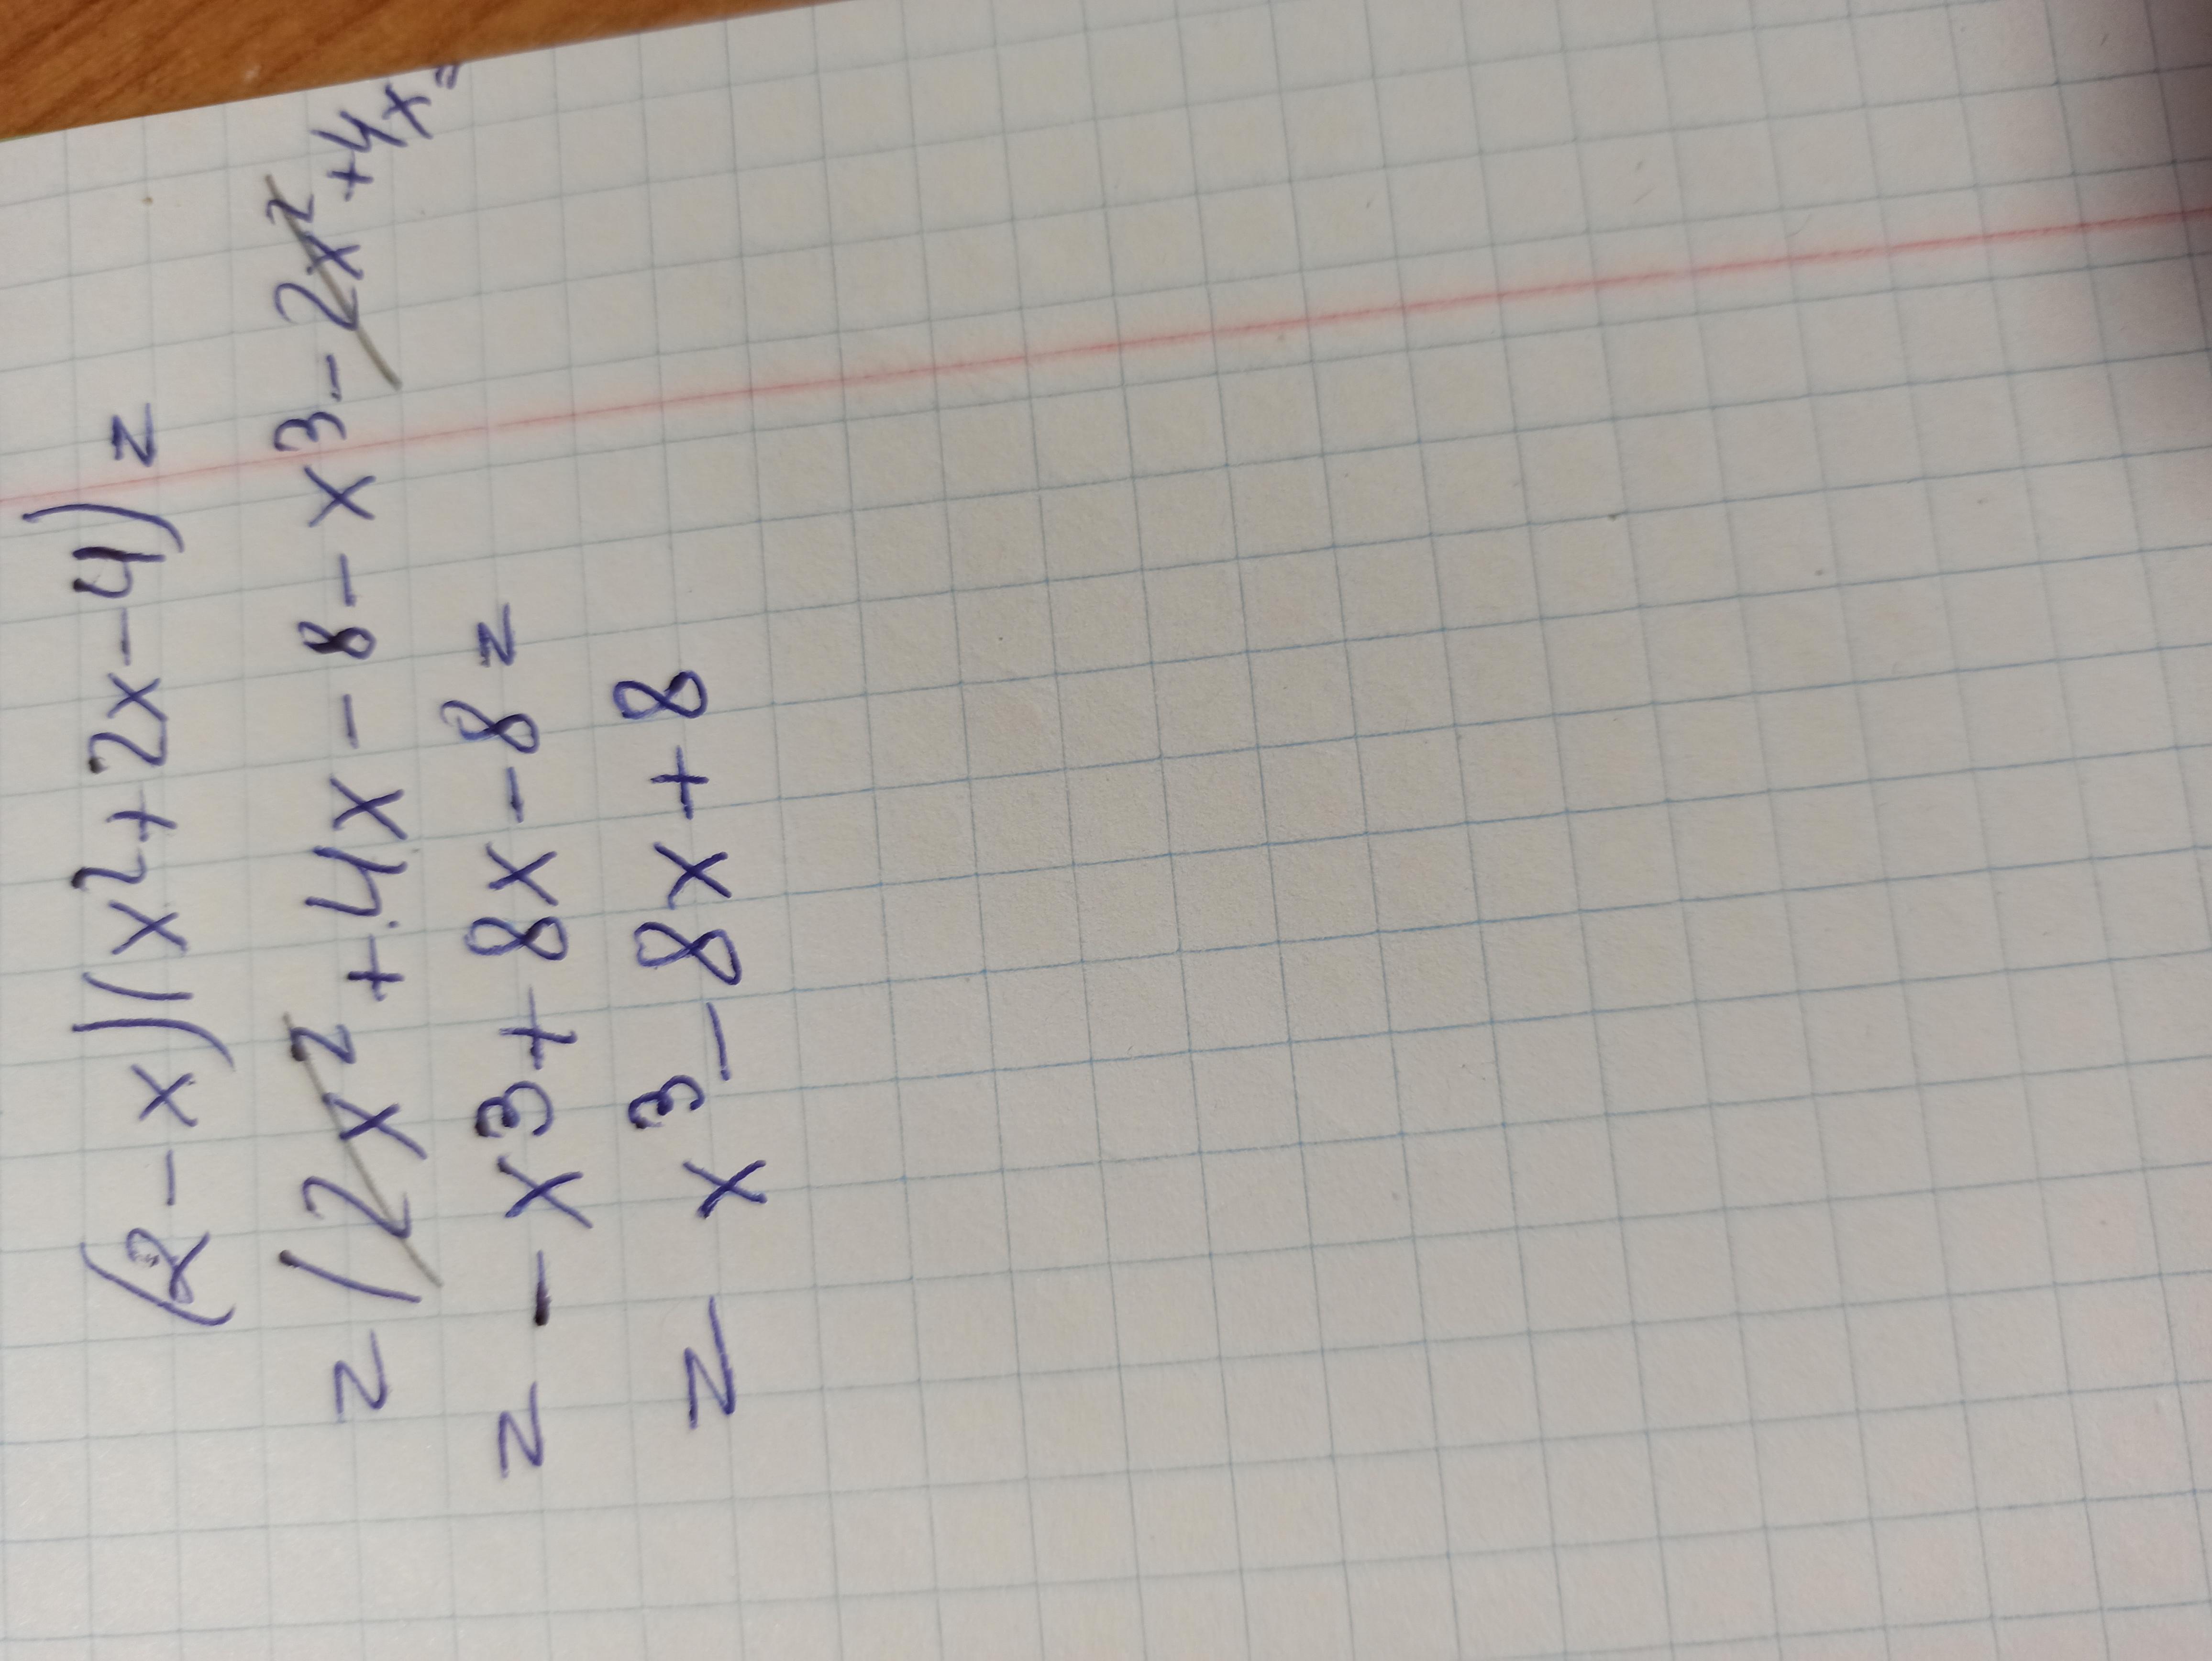 (2-x)(x²+2x-4)=
=(2x²+4x-8-x³-2x²+4x=
=-x³+8x-8=
=x³-8x+8